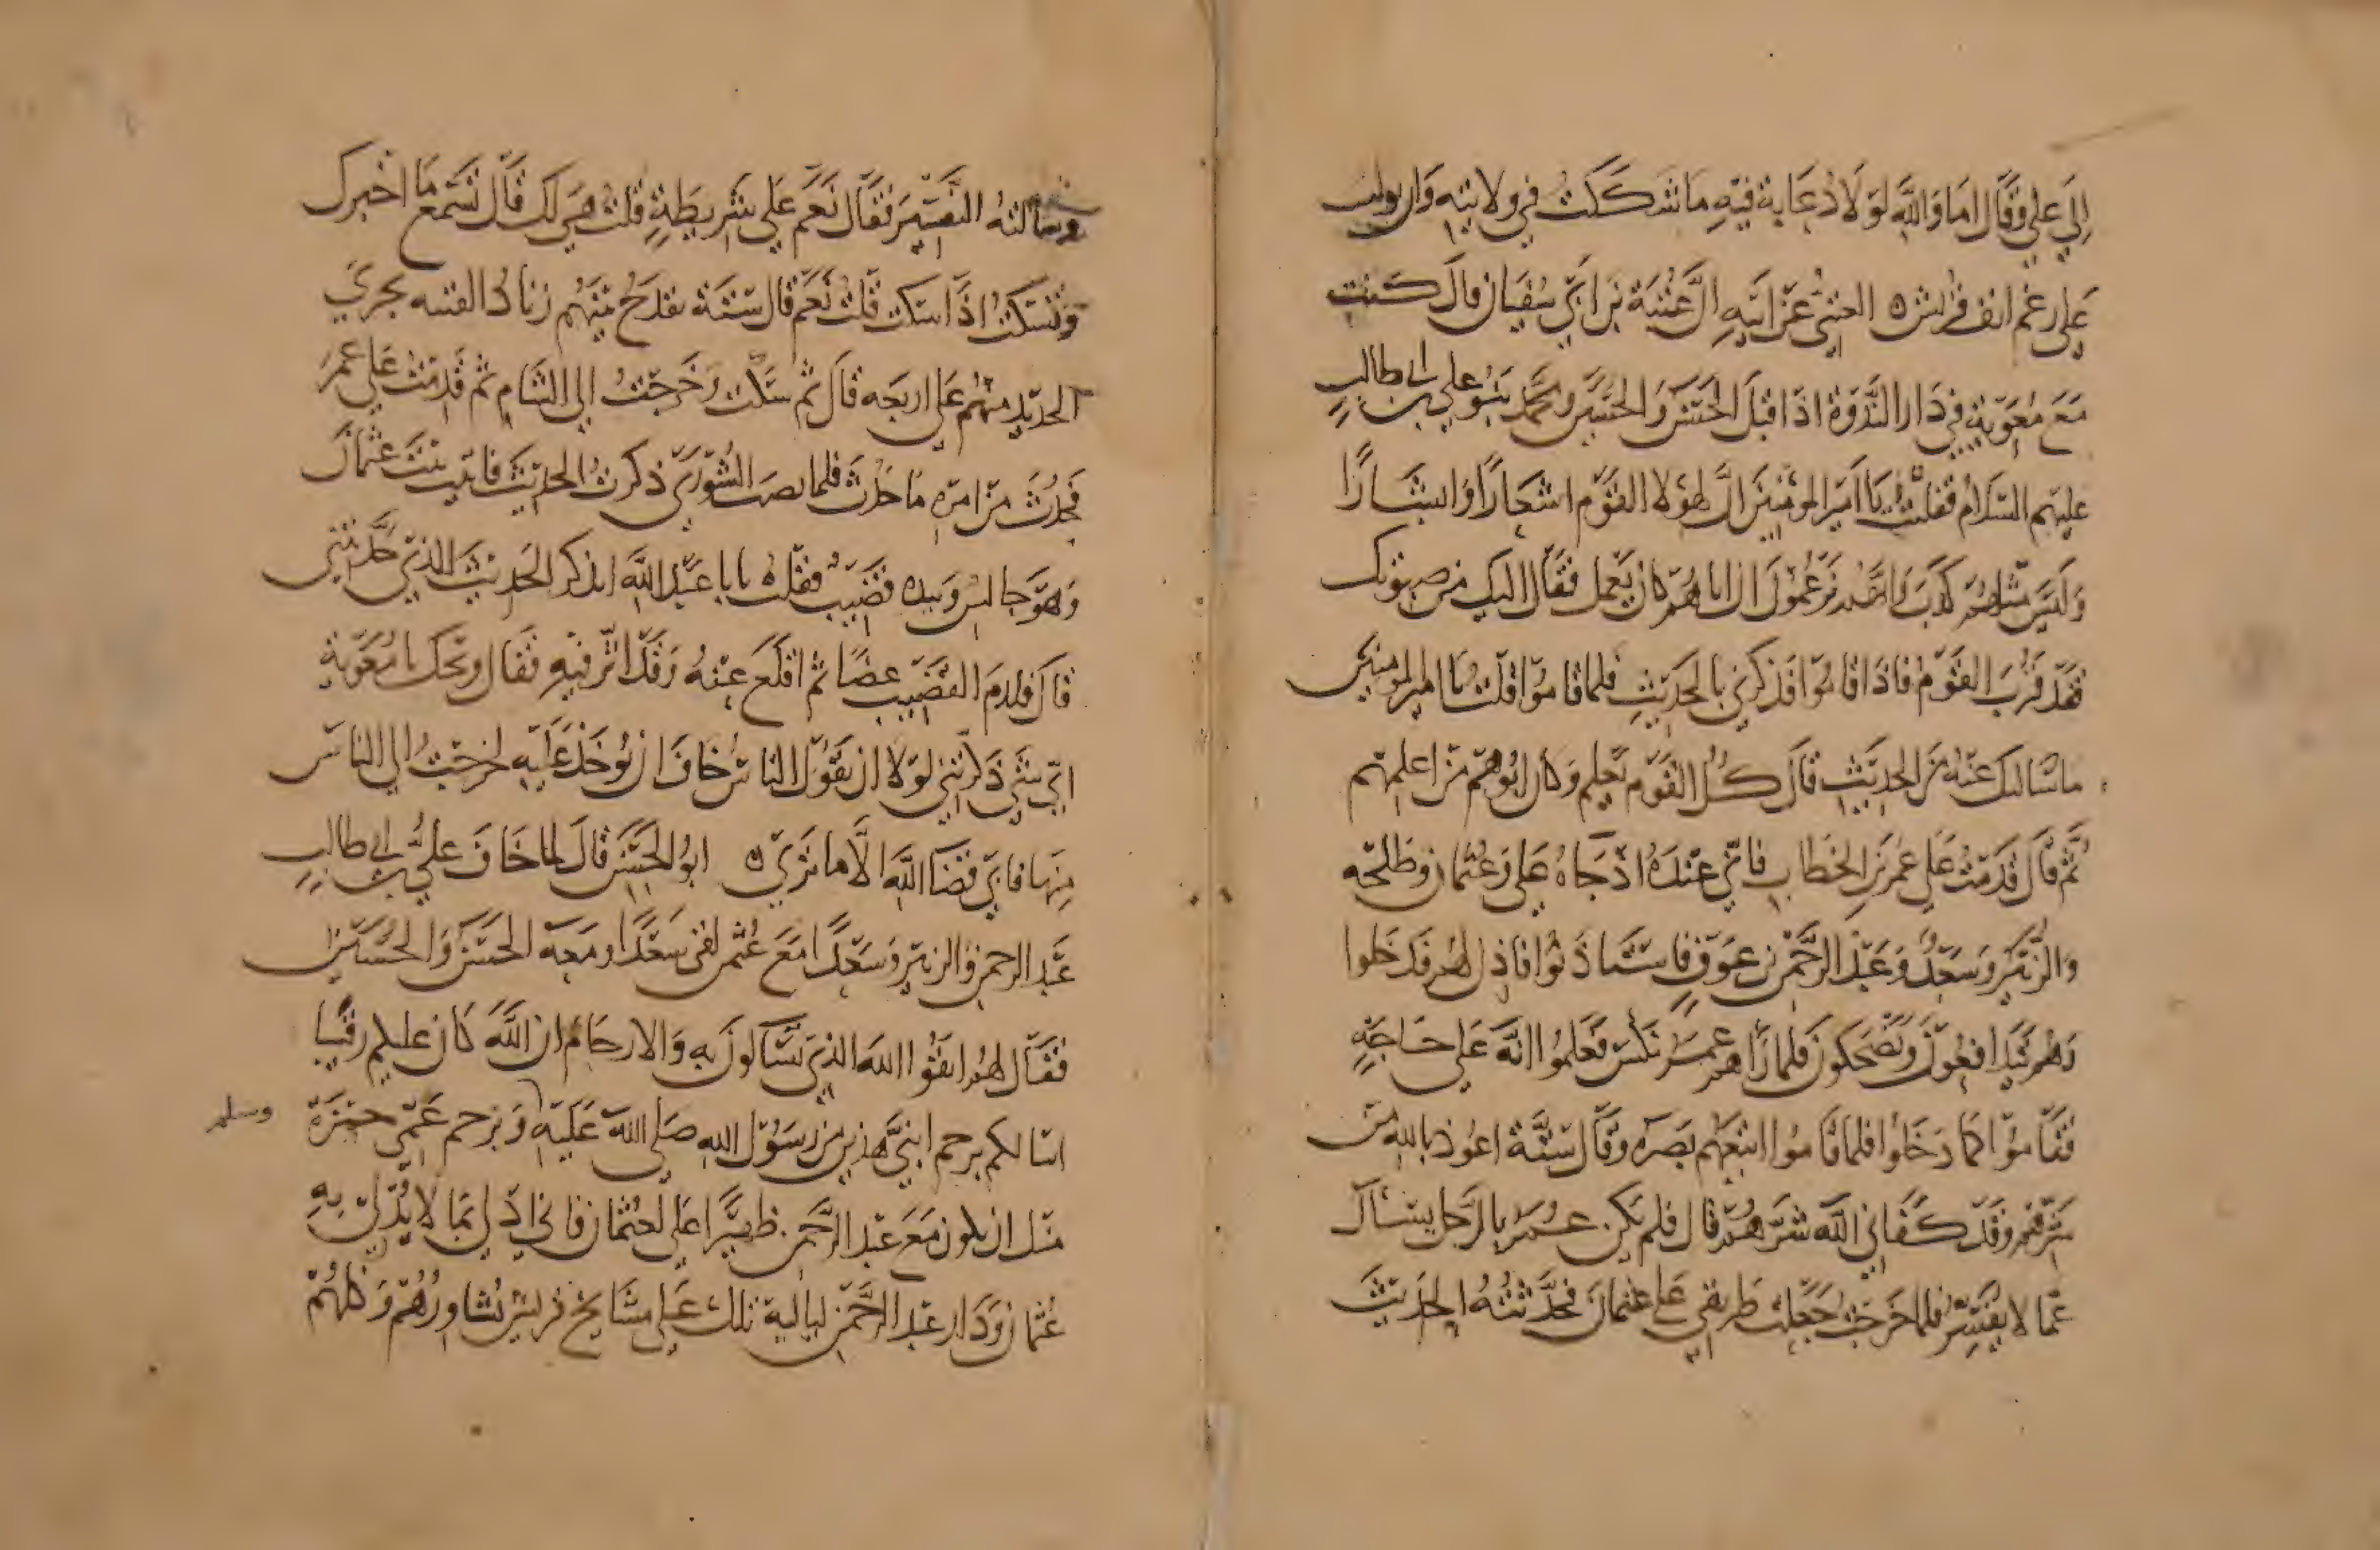 الي علي وقال اما والله لولا دعابة فيه ما شككت في ولايته وان
علي رغم انف قريش ه العتبي عن ابيه ان عتبة بن ابي سفيان قال كنت
مع معوية في دار الندوة اذ اقبل الحسن والحسين ومحمد بنو علي بن ابي طالب
عليهم السلام فقلت يا امير المومنين ان لهولا القوم اشعارا وابشارا
وليس مثلهم كذب وانهم يزعمون ان اباهم كان يعلم فقال اليك من صوتك
فقد قرب القوم فاذا قاموا فذكرني بالحديث فلما قاموا قلت يا امير المومنين
ما سالتك عنه من الحديث قال كل القوم يعلم وكان ابوهم من اعلمهم
ثم قال قدمت علي عمر بن الخطاب فاني عنده اذ جاه علي وعثمان وطلحه
والزبير وسعد وعبد الرحمن بن عوف فاستاذنوا فاذن لهم فدخلوا
وهم يتدافعون ويضحكون فلما راهم عمر نكس فعلموا انه علي حاجة
فقاموا كما دخلوا فلما قاموا اتبعهم بصره وقال ستة اعوذ بالله من
شرهم وقد كفاني الله شرهم قال فلم يكن عمر بالرجل يسال
عما لا يفسر فلما خرجت جعلت طريقي علي عثمان فحدثته الحديث
وسالته التفسير فقال نعم علي شريطة قلت هي لك قال تسمع ما اخبرك
وتسكت اذا سكت قلت نعم قال ستة يقدح بينهم زناد الفتنه يجري
الدم منهم علي اربعه قال ثم سكت وخرجت الي الشام ثم قدمت علي عمر
فحدث من امره ما حدث فلما الشوري ذكرت الحديث فاتيت بيت عثمان
وهو جالس وبيده قضيب فقلت يابا عبد الله اتذكر الحديث الذي حدثتني
قال فازم القضيب عضا ثم اقلع عنه وقد اثر فيه فقال ويحك يا معوية
اي شي ذكرتني لولا ان يقول الناس خاف ان يوخذ عليه لخرجت الي الناس
منها فابي قضا الله الا ما تري ه ابو الحسن قال لما خاف علي بن ابي طالب
عبد الرحمن والزبير وسعدا مع عثمن لقي سعدا ومعه الحسن والحسين
فقال لهم اتقوا الله الذي تسالون به والارحام ان الله كان عليكم رقيبا
اسالكم برحم ابني هذين من رسول الله صلي الله عليه وبرحم عمي حمزة
وسلم
منك ان تكون مع عبد الرحمن ظهيرا علي لعثمان فاني ادلي بما لا يدلي به
عثمان ودار عبد الرحمن لياليه تلك علي مشايخ قريش يشاورهم وكلهم